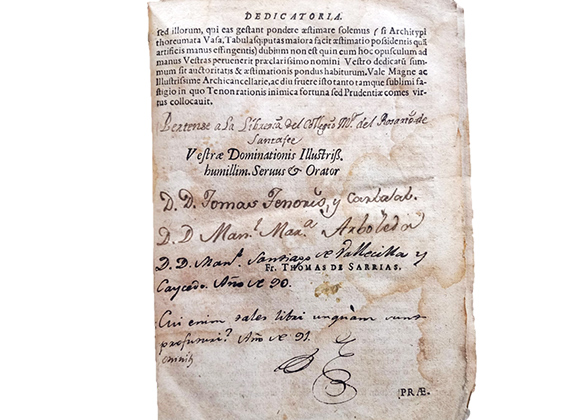 DEDICATORIA.
sed illorum, qui eas gestant pondere æstimare solemus (si Architypi
thoreumata Vasa, Tabulasq; putas maiora facit æstimatio possidentis quã
artificis manus effingentis) dubium non est quin eum hoc opusculum ad
manus Vestras peruenerit præclarissimo nomini Vestro dedicatũ sum-
mum sit auctoritatis & æstimationis pondus habiturum. Vale Magne ac
Illustrissime Archicancellarie, ac diu fruere isto tanto tamque sublimi fa-
stigio in quo Te non rationis inimica fortuna sed Prudentiæ comes vir-
tus collocauit.
Pertenese a la Libreria del Collegio Mr. del Rosario de
Santafee
Vestræ Dominationis Illustriss.
humillim. Seruus & Orator
D. D. Tomas Tenorio, y Carbajal.
D. D Manl. Mara. Arboleda
D. D. Manl. Santiago de Vallecilla y
Fr. THOMAS DE SARRIAS.
Caycedo. Año de 90.
Cui enim tales libri unquam sunt
profuturi? Año de 91.
PRÆ.